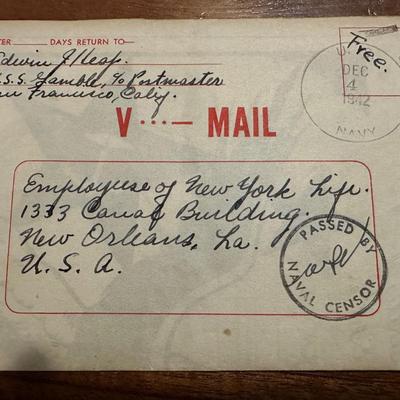 TER ____ DAYS RETURN TO—
Edwin J. Heap.
U.S.S. Gamble, c/o Postmaster
San Francisco, Calif.
Free.
U.S.
DEC
4
1942
NAVY
V ···— MAIL
Employees of New York Life.
1333 Canal Building.
New Orleans, La.
U.S.A.
PASSED BY
NAVAL CENSOR